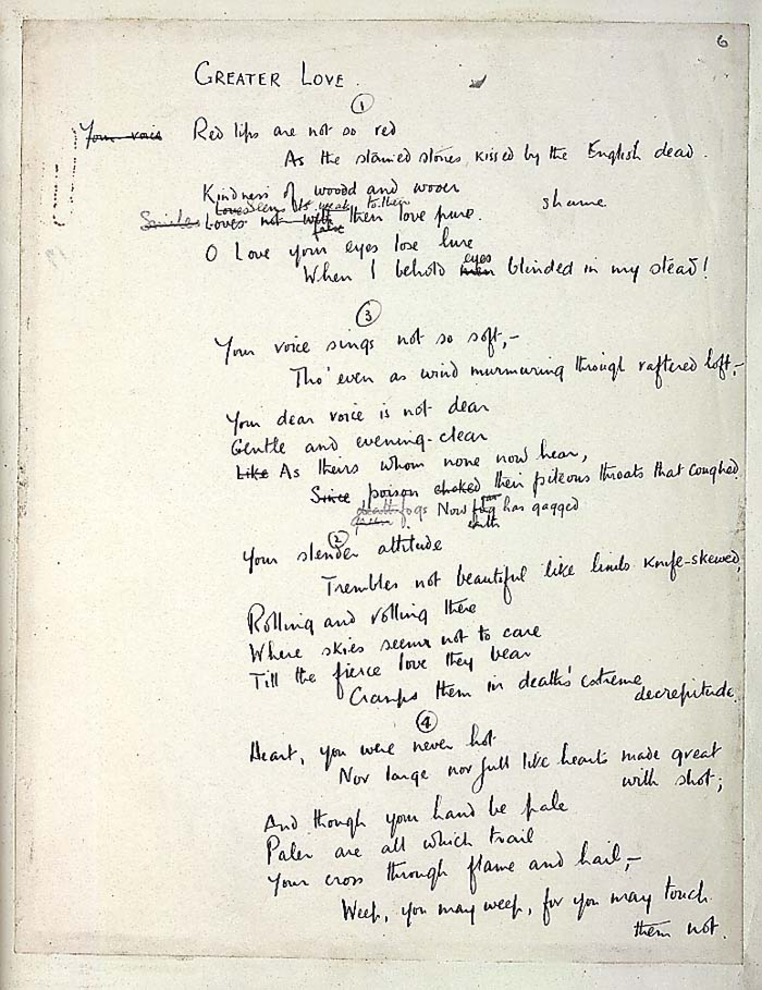 6
GREATER LOVE.
1
Your voice Red lips are not so red
As the stained stones kissed by the English dead.
Kindness of wooed and wooer
Love seems its weak to their shame
Smiles Loves not with their love pure.
false
O Love your eyes lose lure
eyes
When I behold men blinded in my stead!
3
Your voice sings not so soft,-
Tho' even as wind murmuring through raftered loft,-
Your dear voice is not dear
Gentle and evening-clear
Like As theirs whom none now hear,
Since poison choked their piteous throats that coughed.
death fogs Now fog has gagged
earth
2
Your slender attitude
Trembles not beautiful like limbs knife-skewed,
Rolling and rolling there
Where skies seem not to care
Till the fierce love they bear
Cramps them in death's extreme
decrepitude.
4
Heart, you were never hot
Nor large nor full like hearts made great
with shot;
And though your hand be pale
Paler are all which trail
Your cross through flame and hail,-
Weep, you may weep, for you may touch
them not.